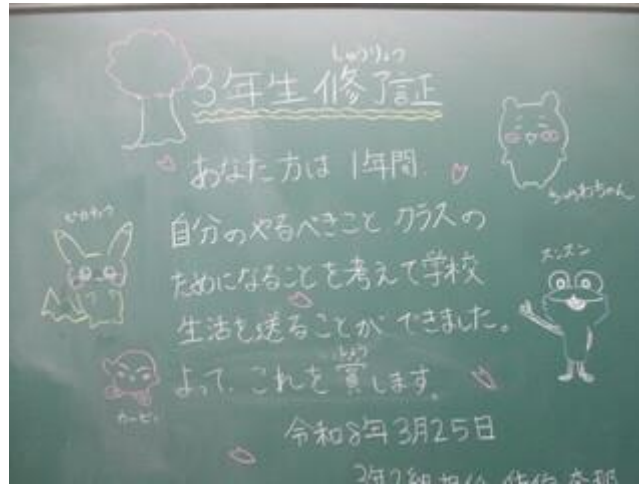 しゅうりょう
3年生 修了証
あなた方は 1年間
自分のやるべきこと クラスの
ためになることを考えて学校
生活を送ることが できました。
しょう
よって、これを賞します。
令和8年3月25日
ピカチュウ
カービィ
ズンズン